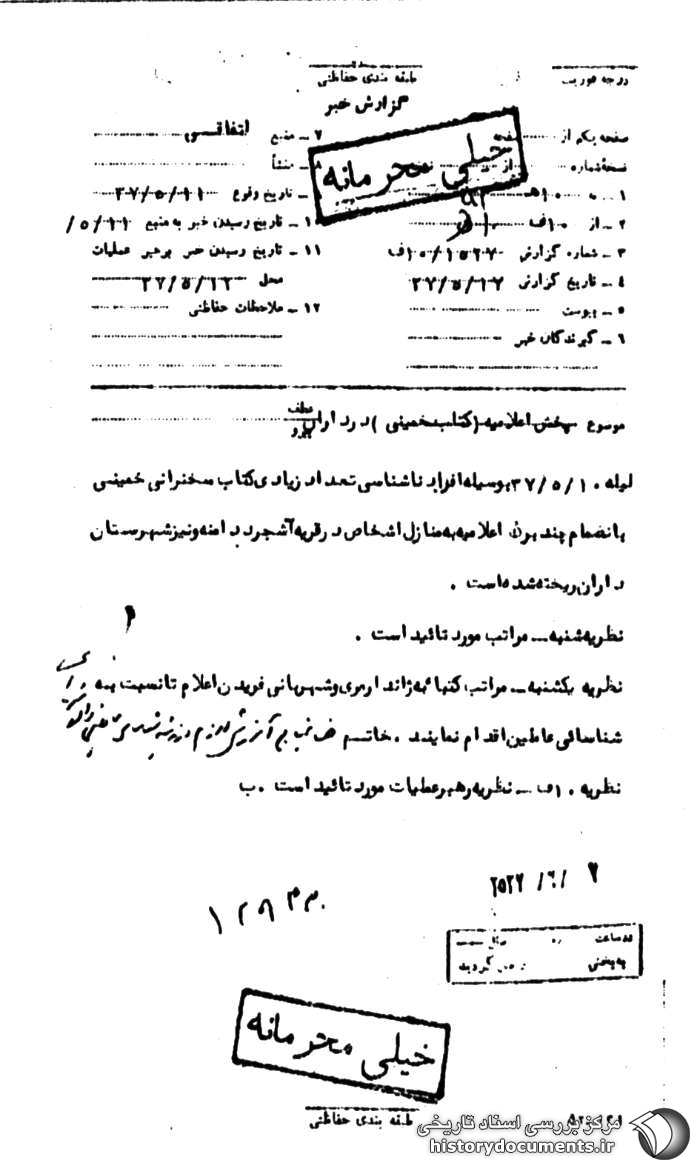 درجه فوریت
طبقه بندی حفاظتی
گزارش خبر
صفحه یکم از صفحه
نسخه شماره از
۱ ـ به ۱۰هـ
۲ ـ از ۱۰ف
۳ ـ شماره گزارش ۱۰/۱۵۲۷ف
۴ ـ تاریخ گزارش ۳۷/۵/۱۷
۵ ـ پیوست
۶ ـ گیرندگان خبر
۷ ـ منبع اتفاقی
۸ ـ منشأ
ـ تاریخ وقوع ۳۷/۵/۱۱
۱۰ ـ تاریخ رسیدن خبر به منبع ۵/۱۱/
۱۱ ـ تاریخ رسیدن خبر برهبر عملیات
محل ۳۷/۵/۱۶
۱۲ ـ ملاحظات حفاظتی
خیلی محرمانه
موضوع پخش اعلامیه (کتاب خمینی) در داران
عطف
پیرو
لیله ۳۷/۵/۱۰ بوسیله افراد ناشناسی تعداد زیادی کتاب سخنرانی خمینی
بانضمام چند برگ اعلامیه به منازل اشخاص در قریه آشجرد دامنه و نیز شهرستان
داران ریخته شده است .
نظریه شنبه ـ مراتب مورد تائید است .
نظریه یکشنبه ـ مراتب کتبا به ژاندارمری و شهربانی فریدن اعلام تا نسبت به
شناسائی عاملین اقدام نمایند . خاتم
نظریه ۱۰ف ـ نظریه رهبر عملیات مورد تائید است . ب
۲۵۳۷/۶/۲
خیلی محرمانه
طبقه بندی حفاظتی
مرکز بررسی اسناد تاریخی
historydocuments.ir